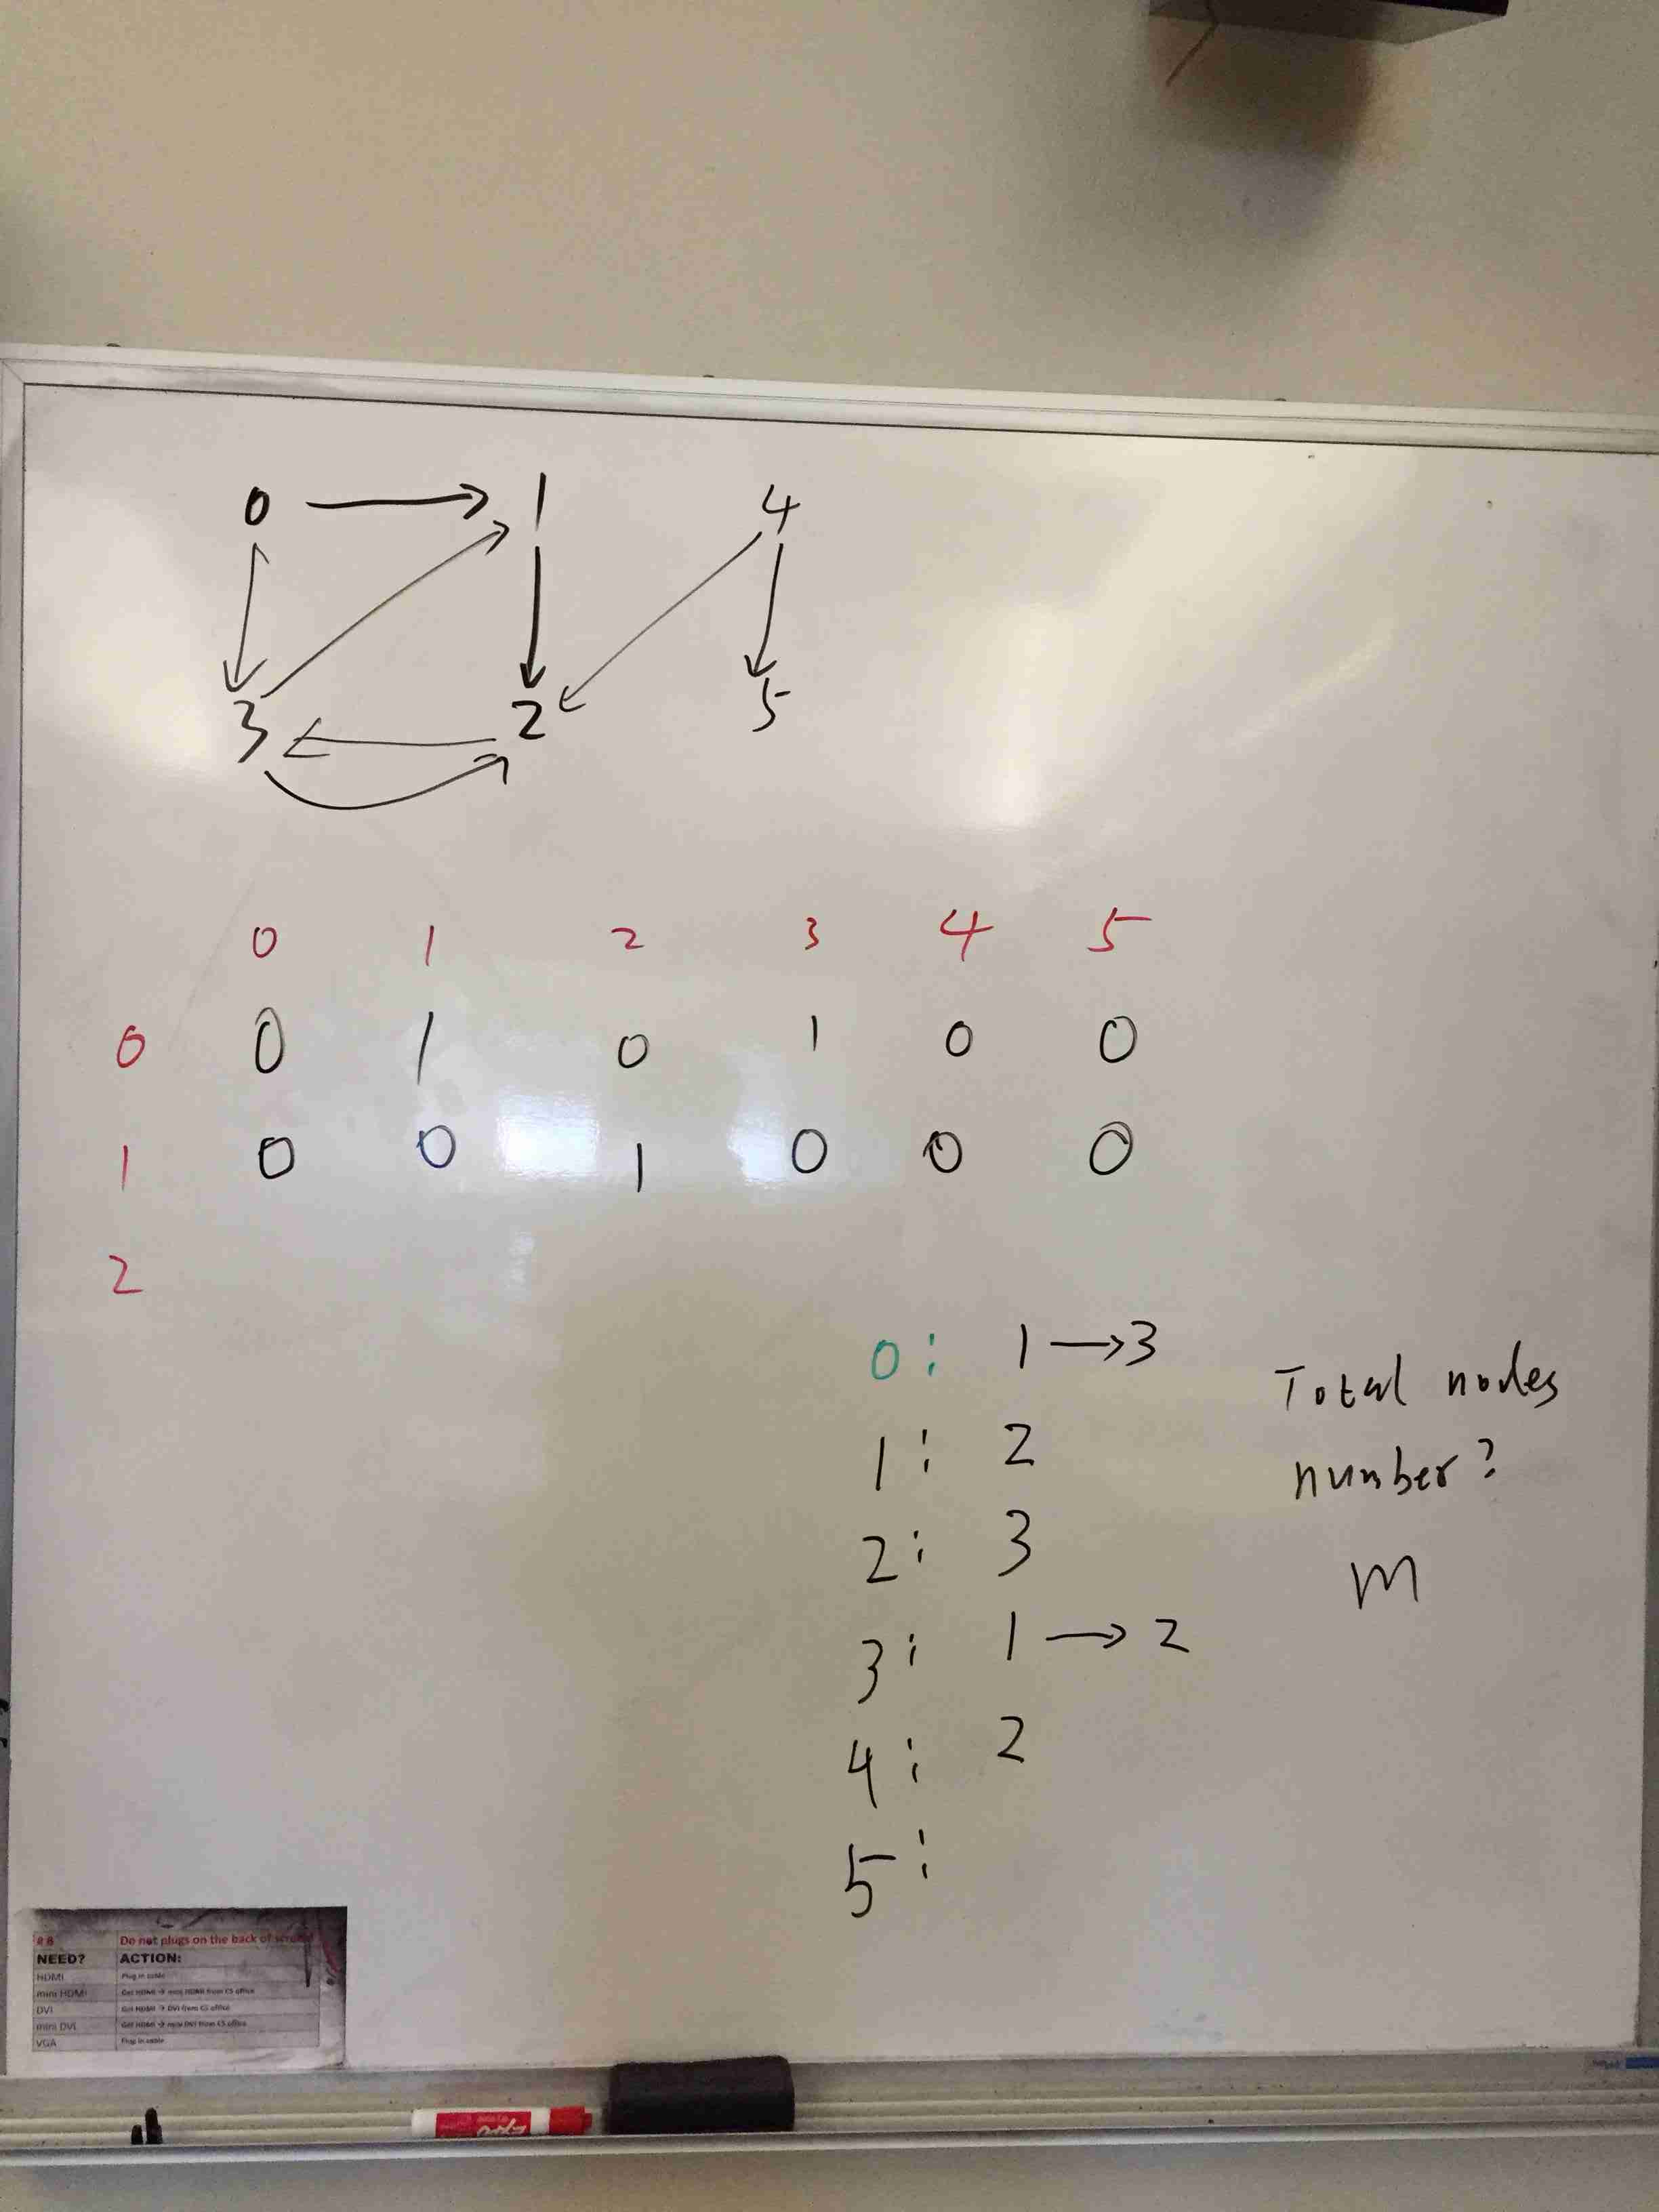 0 → 1 4
3 2 5
0 1 2 3 4 5
0 0 1 0 1 0 0
1 0 0 1 0 0 0
2
0: 1 → 3
1: 2
2: 3
3: 1 → 2
4: 2
5:
Total nodes
number?
m
Do not plugs on the back of
NEED? ACTION:
HDMI Plug in cable
mini HDMI Get HDMI → mini HDMI from CS office
DVI Get HDMI → DVI from CS office
mini DVI Get HDMI → mini DVI from CS office
VGA Plug in cable
EXPO